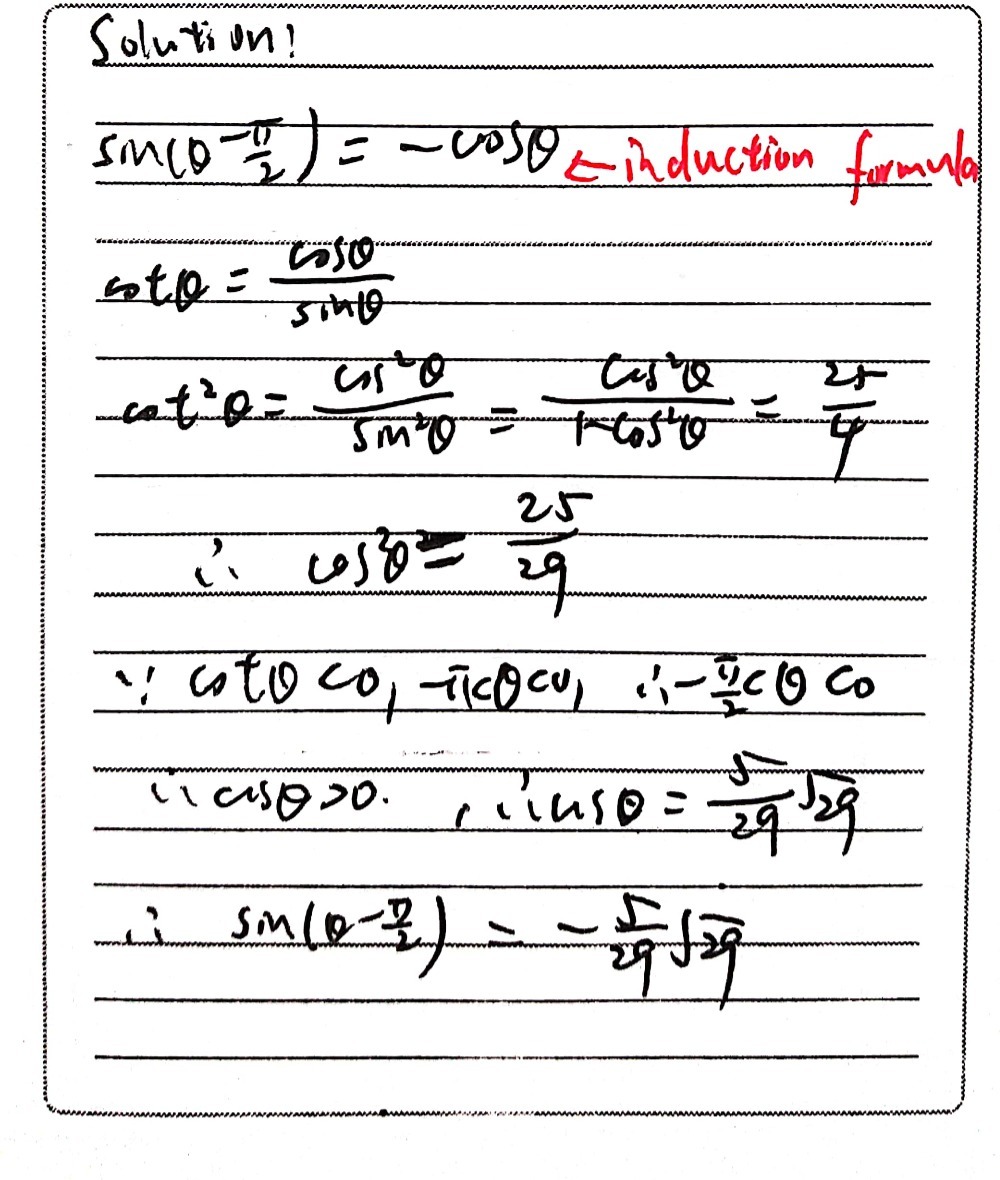 Solution!
sin(θ-π/2) = -cosθ ← induction formula
cotθ = cosθ/sinθ
cot²θ = cos²θ/sin²θ = cos²θ/1-cos²θ = 25/4
∴ cos²θ = 25/29
∵ cotθ<0, -π<θ<0, ∴ -π/2<θ<0
∴ cosθ>0. , ∴ cosθ = 5/29 √29
∴ sin(θ-π/2) = -5/29 √29